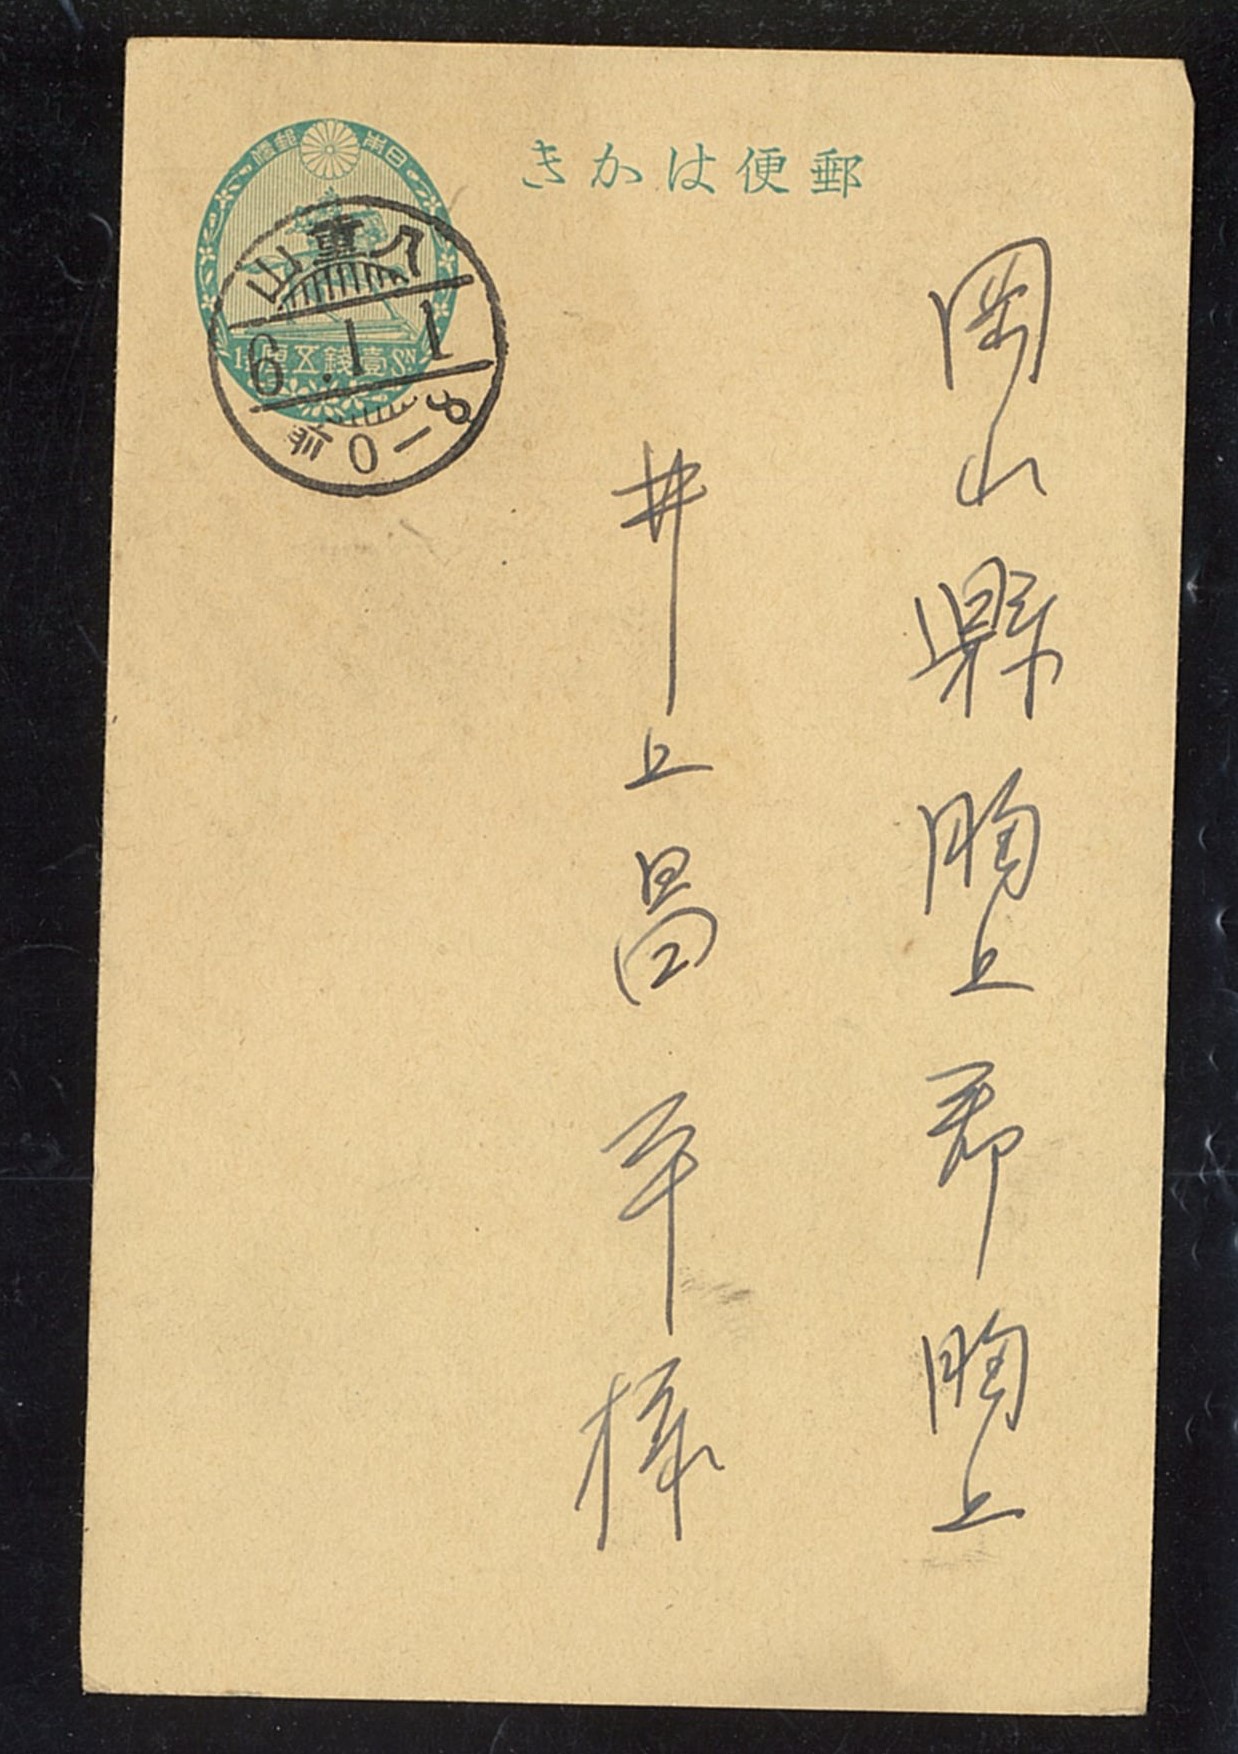 きかは便郵
日本 郵便
1½ 壹錢五厘 SN
山重八
6.1.1
前0-8
岡山縣勝上郡勝上
井上昌平様